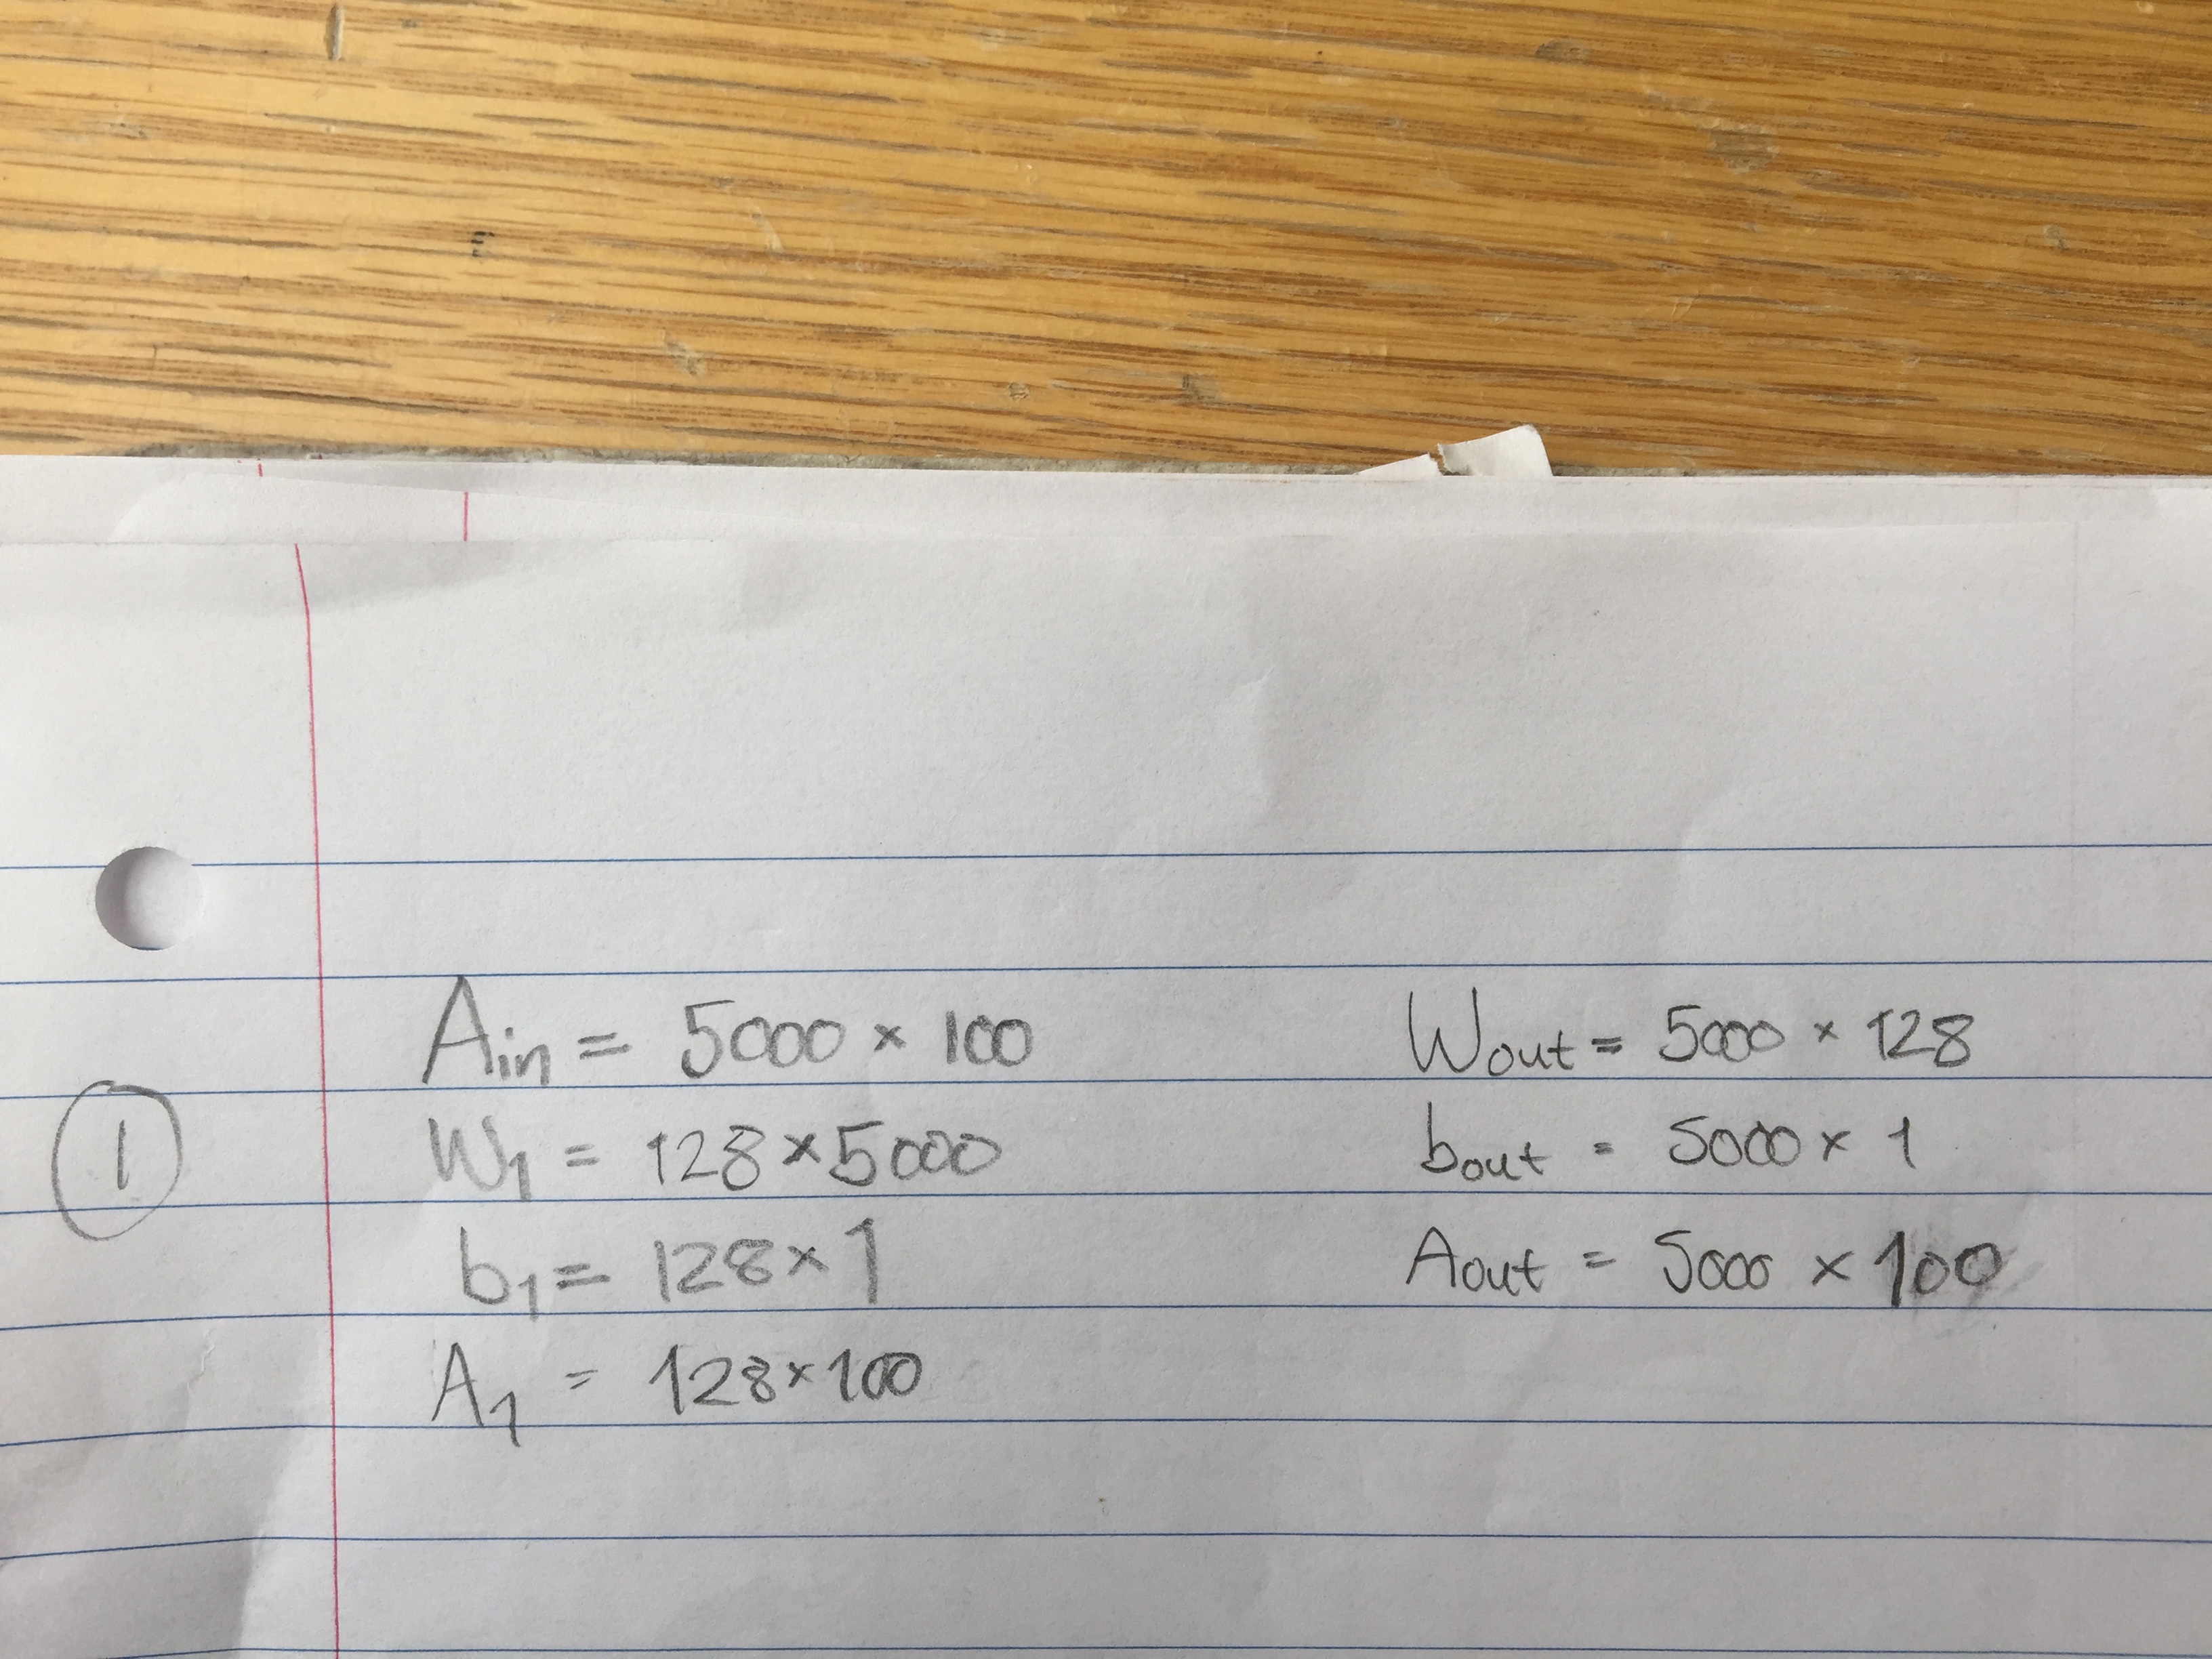 1
Ain = 5000 × 100
W1 = 128 × 5000
b1 = 128 × 1
A1 = 128 × 100
Wout = 5000 × 128
bout = 5000 × 1
Aout = 5000 × 100